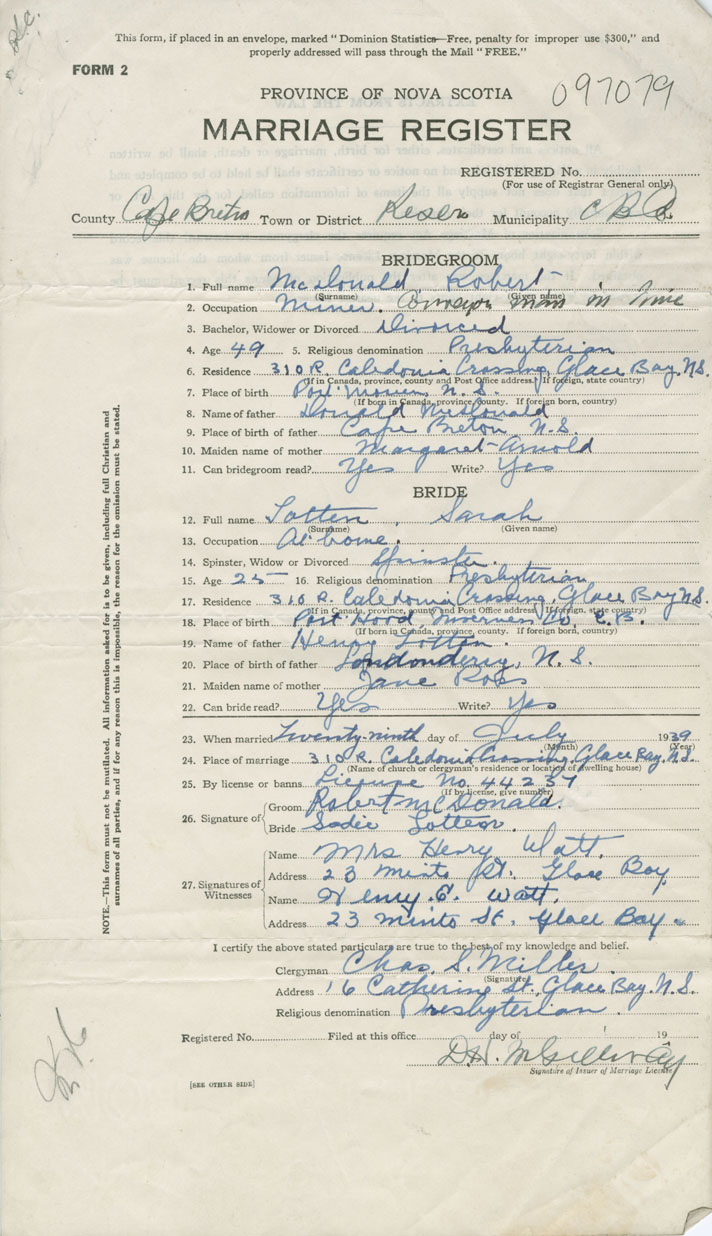 This form, if placed in an envelope, marked "Dominion Statistics—Free, penalty for improper use $300," and
properly addressed will pass through the Mail "FREE."
FORM 2
PROVINCE OF NOVA SCOTIA 097079
MARRIAGE REGISTER
REGISTERED No.
(For use of Registrar General only)
County Cape Breton Town or District Reserve Municipality C B Co
BRIDEGROOM
1. Full name McDonald, Robert
(Surname) (Given name)
2. Occupation Miner. man in mine
3. Bachelor, Widower or Divorced Divorced
4. Age 49 5. Religious denomination Presbyterian
6. Residence 310 R. Caledonia Crossing, Glace Bay, N.S.
(If in Canada, province, county and Post Office address. If foreign, state country)
7. Place of birth Port Morien, N.S.
(If born in Canada, province, county. If foreign born, country)
8. Name of father Donald McDonald
9. Place of birth of father Cape Breton N.S.
10. Maiden name of mother Margaret Arnold
11. Can bridegroom read? Yes Write? Yes
BRIDE
12. Full name Totten, Sarah
(Surname) (Given name)
13. Occupation At home.
14. Spinster, Widow or Divorced Spinster.
15. Age 25 16. Religious denomination Presbyterian
17. Residence 310 R. Caledonia Crossing, Glace Bay N.S.
(If in Canada, province, county and Post Office address. If foreign, state country)
18. Place of birth Port Hood, Inverness Co, C.B.
(If born in Canada, province, county. If foreign born, country)
19. Name of father Henry Totten
20. Place of birth of father Londonderry, N.S.
21. Maiden name of mother Jane Ross
22. Can bride read? Yes Write? Yes
23. When married Twenty-ninth day of July 1939
(Month) (Year)
24. Place of marriage 310 R. Caledonia Crossing, Glace Bay, N.S.
(Name of church or clergyman's residence or location of dwelling house)
25. By license or banns License No. 44237
(If by license, give number)
26. Signature of Groom Robert McDonald.
Bride Sadie Totten.
27. Signatures of Witnesses
Name Mrs Henry Watt.
Address 23 Minto St. Glace Bay
Name Henry. E. Watt.
Address 23 Minto St. Glace Bay.
I certify the above stated particulars are true to the best of my knowledge and belief.
Clergyman Chas. S. Miller.
(Signature)
Address 16 Catherine St., Glace Bay. N.S.
Religious denomination Presbyterian.
Registered No. Filed at this office day of 19
D.H. McGillivray
Signature of Issuer of Marriage License
[SEE OTHER SIDE]
NOTE.—This form must not be mutilated. All information asked for is to be given, including full Christian and
surnames of all parties, and if for any reason this is impossible, the reason for the omission must be stated.